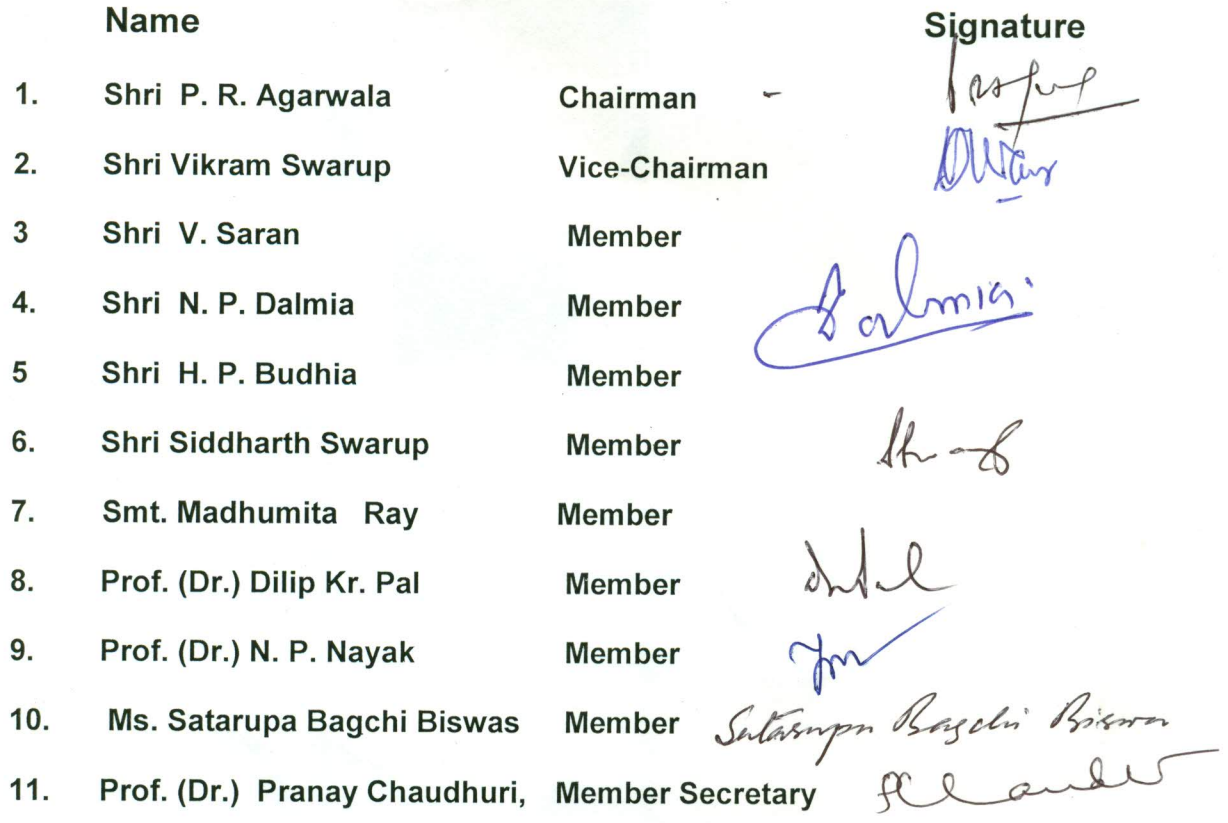 Name Signature
1. Shri P. R. Agarwala Chairman -
2. Shri Vikram Swarup Vice-Chairman
3 Shri V. Saran Member
4. Shri N. P. Dalmia Member Dalmia
5 Shri H. P. Budhia Member
6. Shri Siddharth Swarup Member
7. Smt. Madhumita Ray Member
8. Prof. (Dr.) Dilip Kr. Pal Member
9. Prof. (Dr.) N. P. Nayak Member
10. Ms. Satarupa Bagchi Biswas Member Satarupa Bagchi Biswas
11. Prof. (Dr.) Pranay Chaudhuri, Member Secretary